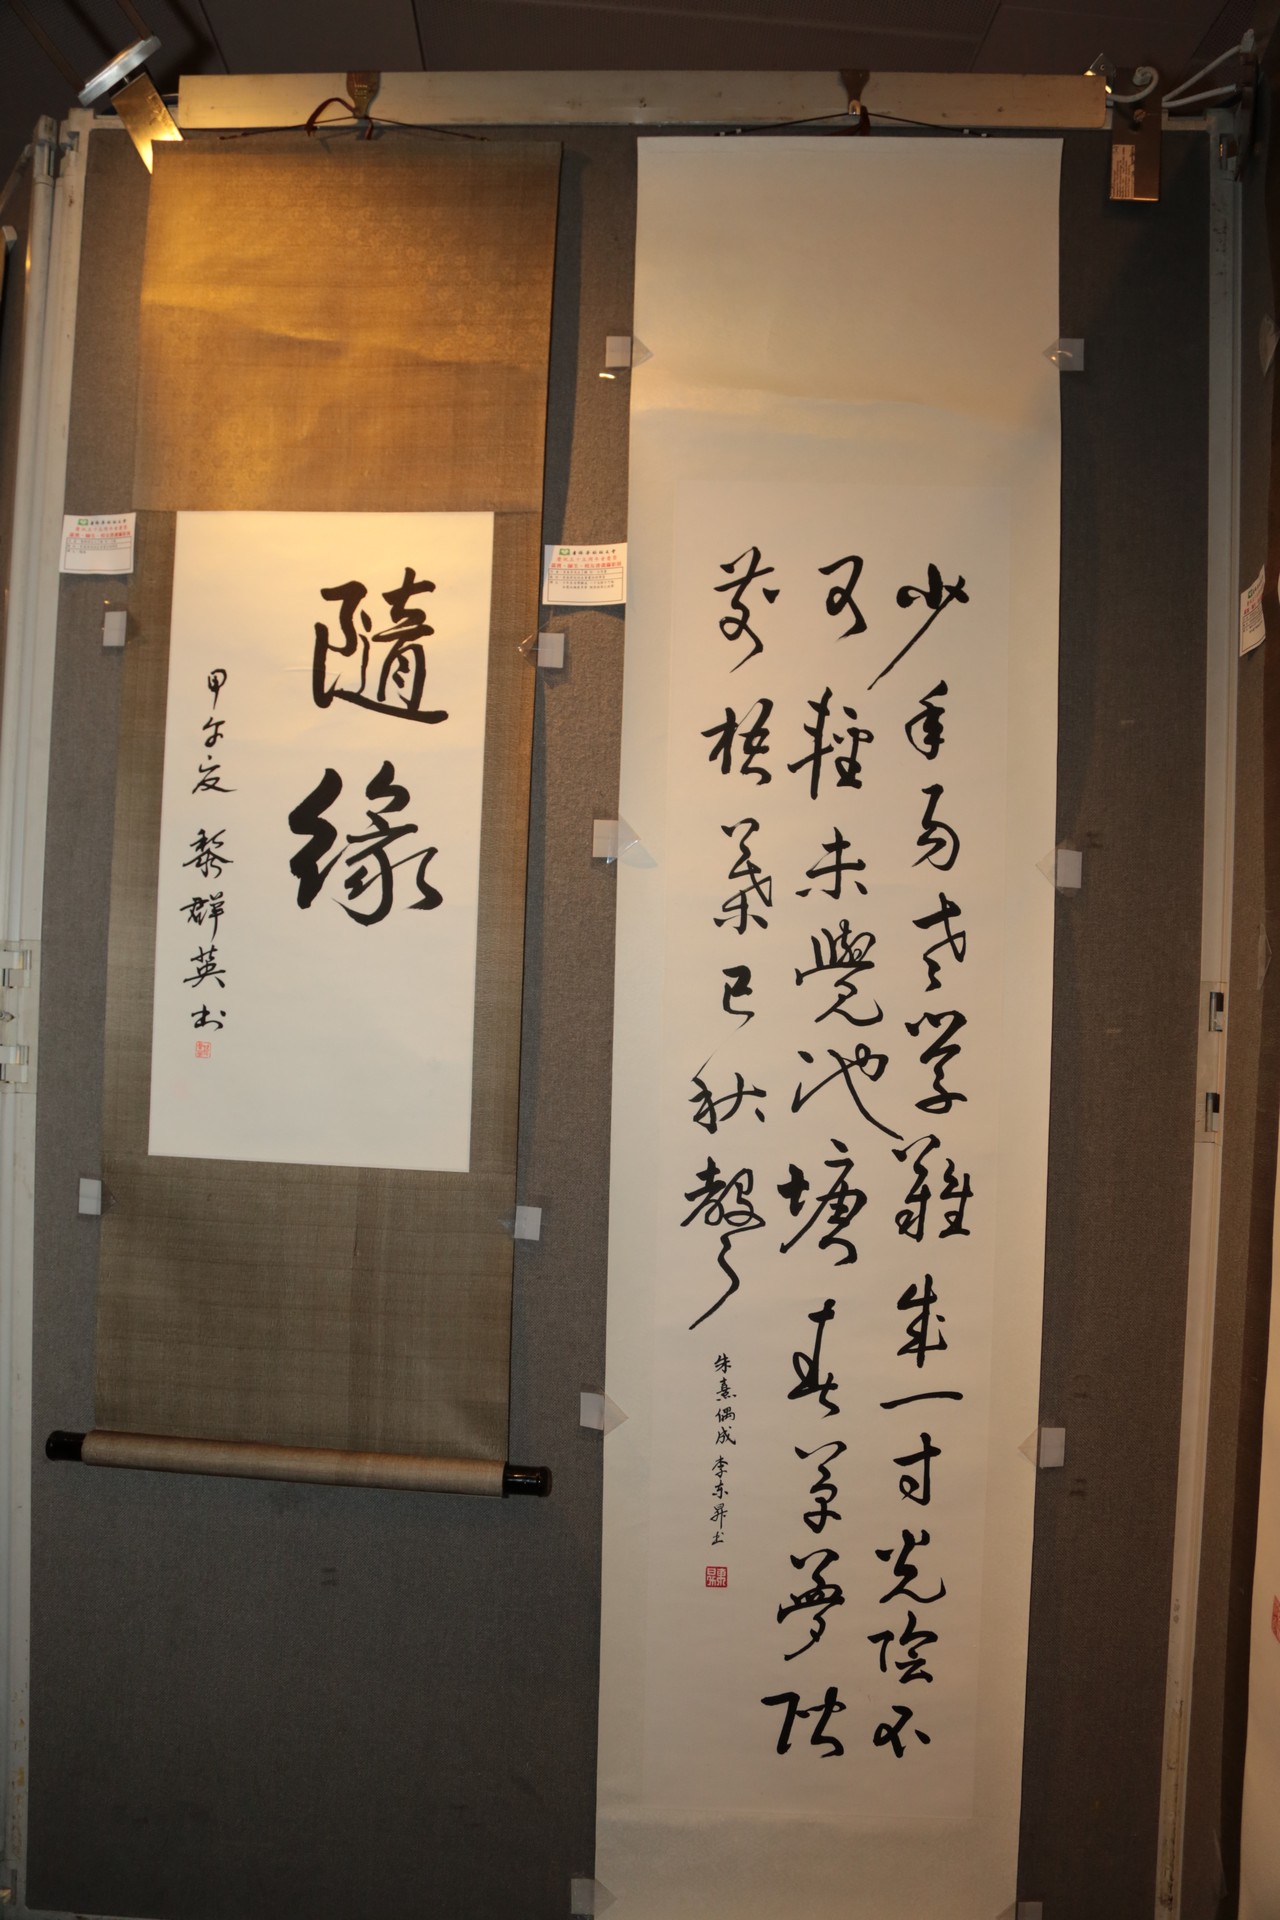 少年易老学難成一寸光陰不
可輕未覺池塘春草夢階
前梧葉已秋聲
朱熹偶成 李东昇书
隨緣
甲午夏 黎群英书